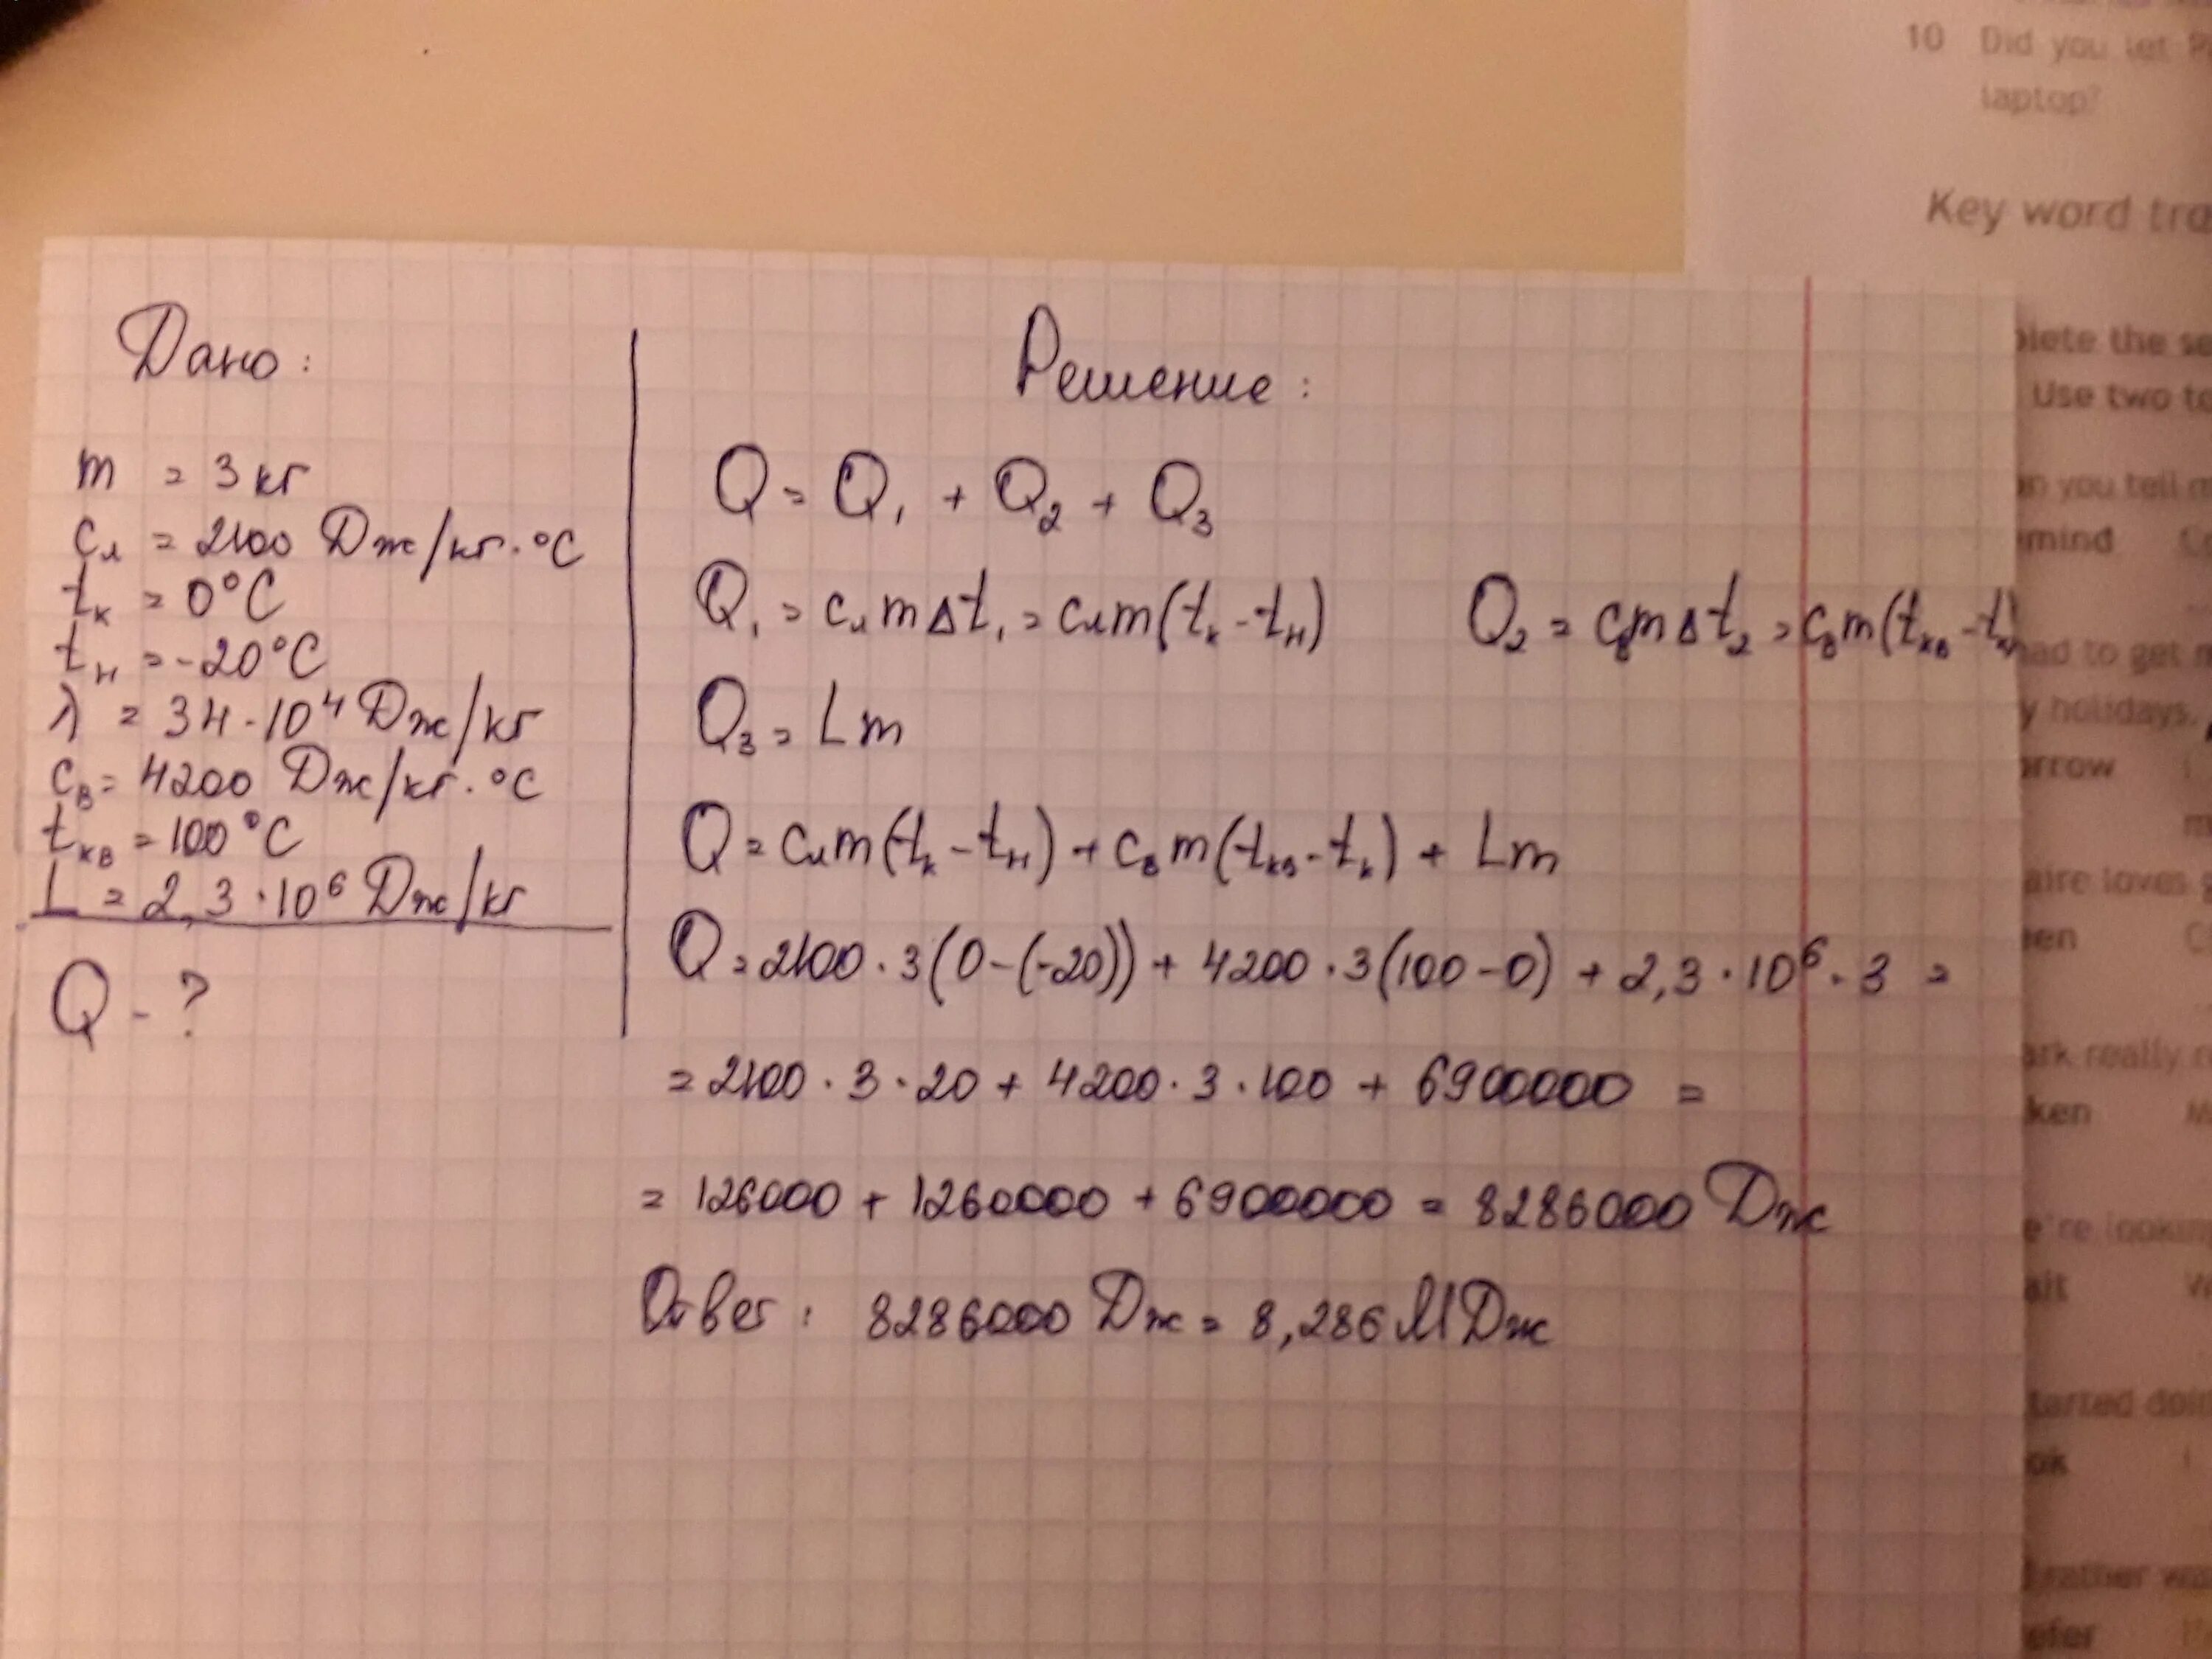 10 Did you let
laptop?
Key word
Дано:
m = 3 кг
cл = 2100 Дж/кг·°C
tк = 0°C
tн = -20°C
λ = 34·10⁴ Дж/кг
cв = 4200 Дж/кг·°C
tкв = 100°C
L = 2,3·10⁶ Дж/кг
Q - ?
Решение:
Q = Q₁ + Q₂ + Q₃
Q₁ = cлmΔt₁ = cлm(tк - tн) Q₂ = cвmΔt₂ = cвm(tкв - tк)
Q₃ = Lm
Q = cлm(tк - tн) + cвm(tкв - tк) + Lm
Q = 2100·3(0-(-20)) + 4200·3(100-0) + 2,3·10⁶·3 =
= 2100·3·20 + 4200·3·100 + 6900000 =
= 126000 + 1260000 + 6900000 = 8286000 Дж
Ответ: 8286000 Дж = 8,286 МДж
the
Use two
you tell
mind
had to get
y holidays.
loves
really
looking
started
rather